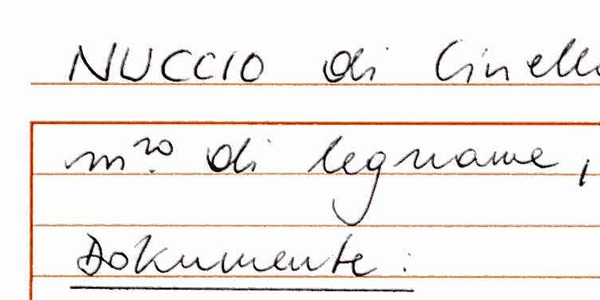 NUCCIO di Cinello
m.ro di legname,
Dokumente: